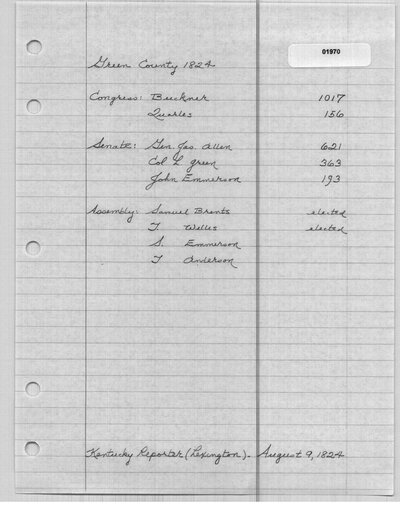 01970
Green County 1824
Congress: Buckner 1017
Quarles 156
Senate: Gen. Jas. Allen 621
Col L Green 363
John Emmerson 193
Assembly: Samuel Brents elected
T. Wells elected
S. Emmerson
T Anderson
Kentucky Reporter (Lexington). August 9, 1824